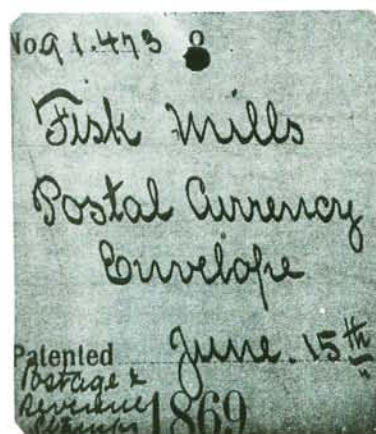 No. 91.473
Fisk Mills
Postal Currency
Envelope
Patented June. 15th
Postage &
Revenue 1869
Stamps